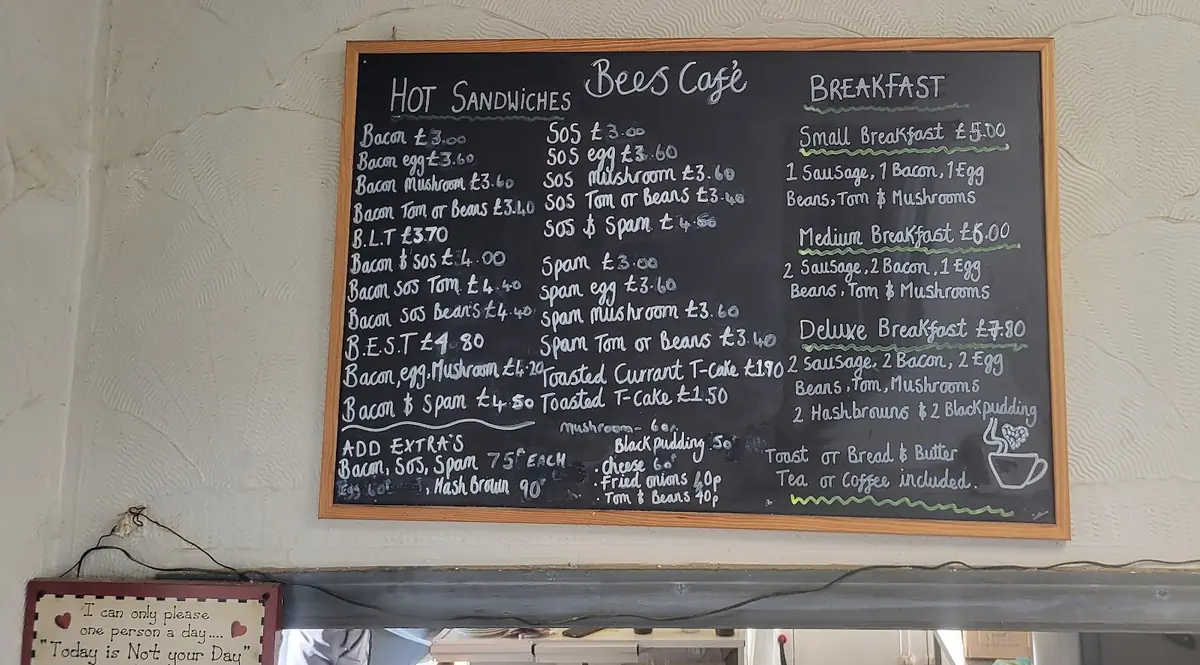 Bees Café
HOT SANDWICHES
Bacon £3.00
Bacon egg £3.60
Bacon Mushroom £3.60
Bacon Tom or Beans £3.40
B.L.T £3.70
Bacon & Sos £4.00
Bacon Sos Tom £4.40
Bacon Sos Bean's £4.40
B.E.S.T £4.80
Bacon, egg, Mushroom £4.20
Bacon & Spam £4.50
ADD EXTRA'S
Bacon, Sos, Spam 75P EACH
Egg 60P, Hash Brown 90P
SOS £3.00
SOS egg £3.60
SOS mushroom £3.60
SOS Tom or Beans £3.40
SOS & Spam £4.50
Spam £3.00
Spam egg £3.60
Spam mushroom £3.60
Spam Tom or Beans £3.40
Toasted Currant T-Cake £1.90
Toasted T-Cake £1.50
Mushroom - 60p
Black pudding 50P
. cheese 60P
. Fried onions 40p
. Tom & Beans 40p
BREAKFAST
Small Breakfast £5.00
1 Sausage, 1 Bacon, 1 Egg
Beans, Tom & Mushrooms
Medium Breakfast £6.00
2 Sausage, 2 Bacon, 1 Egg
Beans, Tom & Mushrooms
Deluxe Breakfast £7.80
2 Sausage, 2 Bacon, 2 Egg
Beans, Tom, Mushrooms
2 Hashbrowns & 2 Black pudding
Toast or Bread & Butter
Tea or Coffee included.
I can only please
one person a day....
"Today is Not your Day"